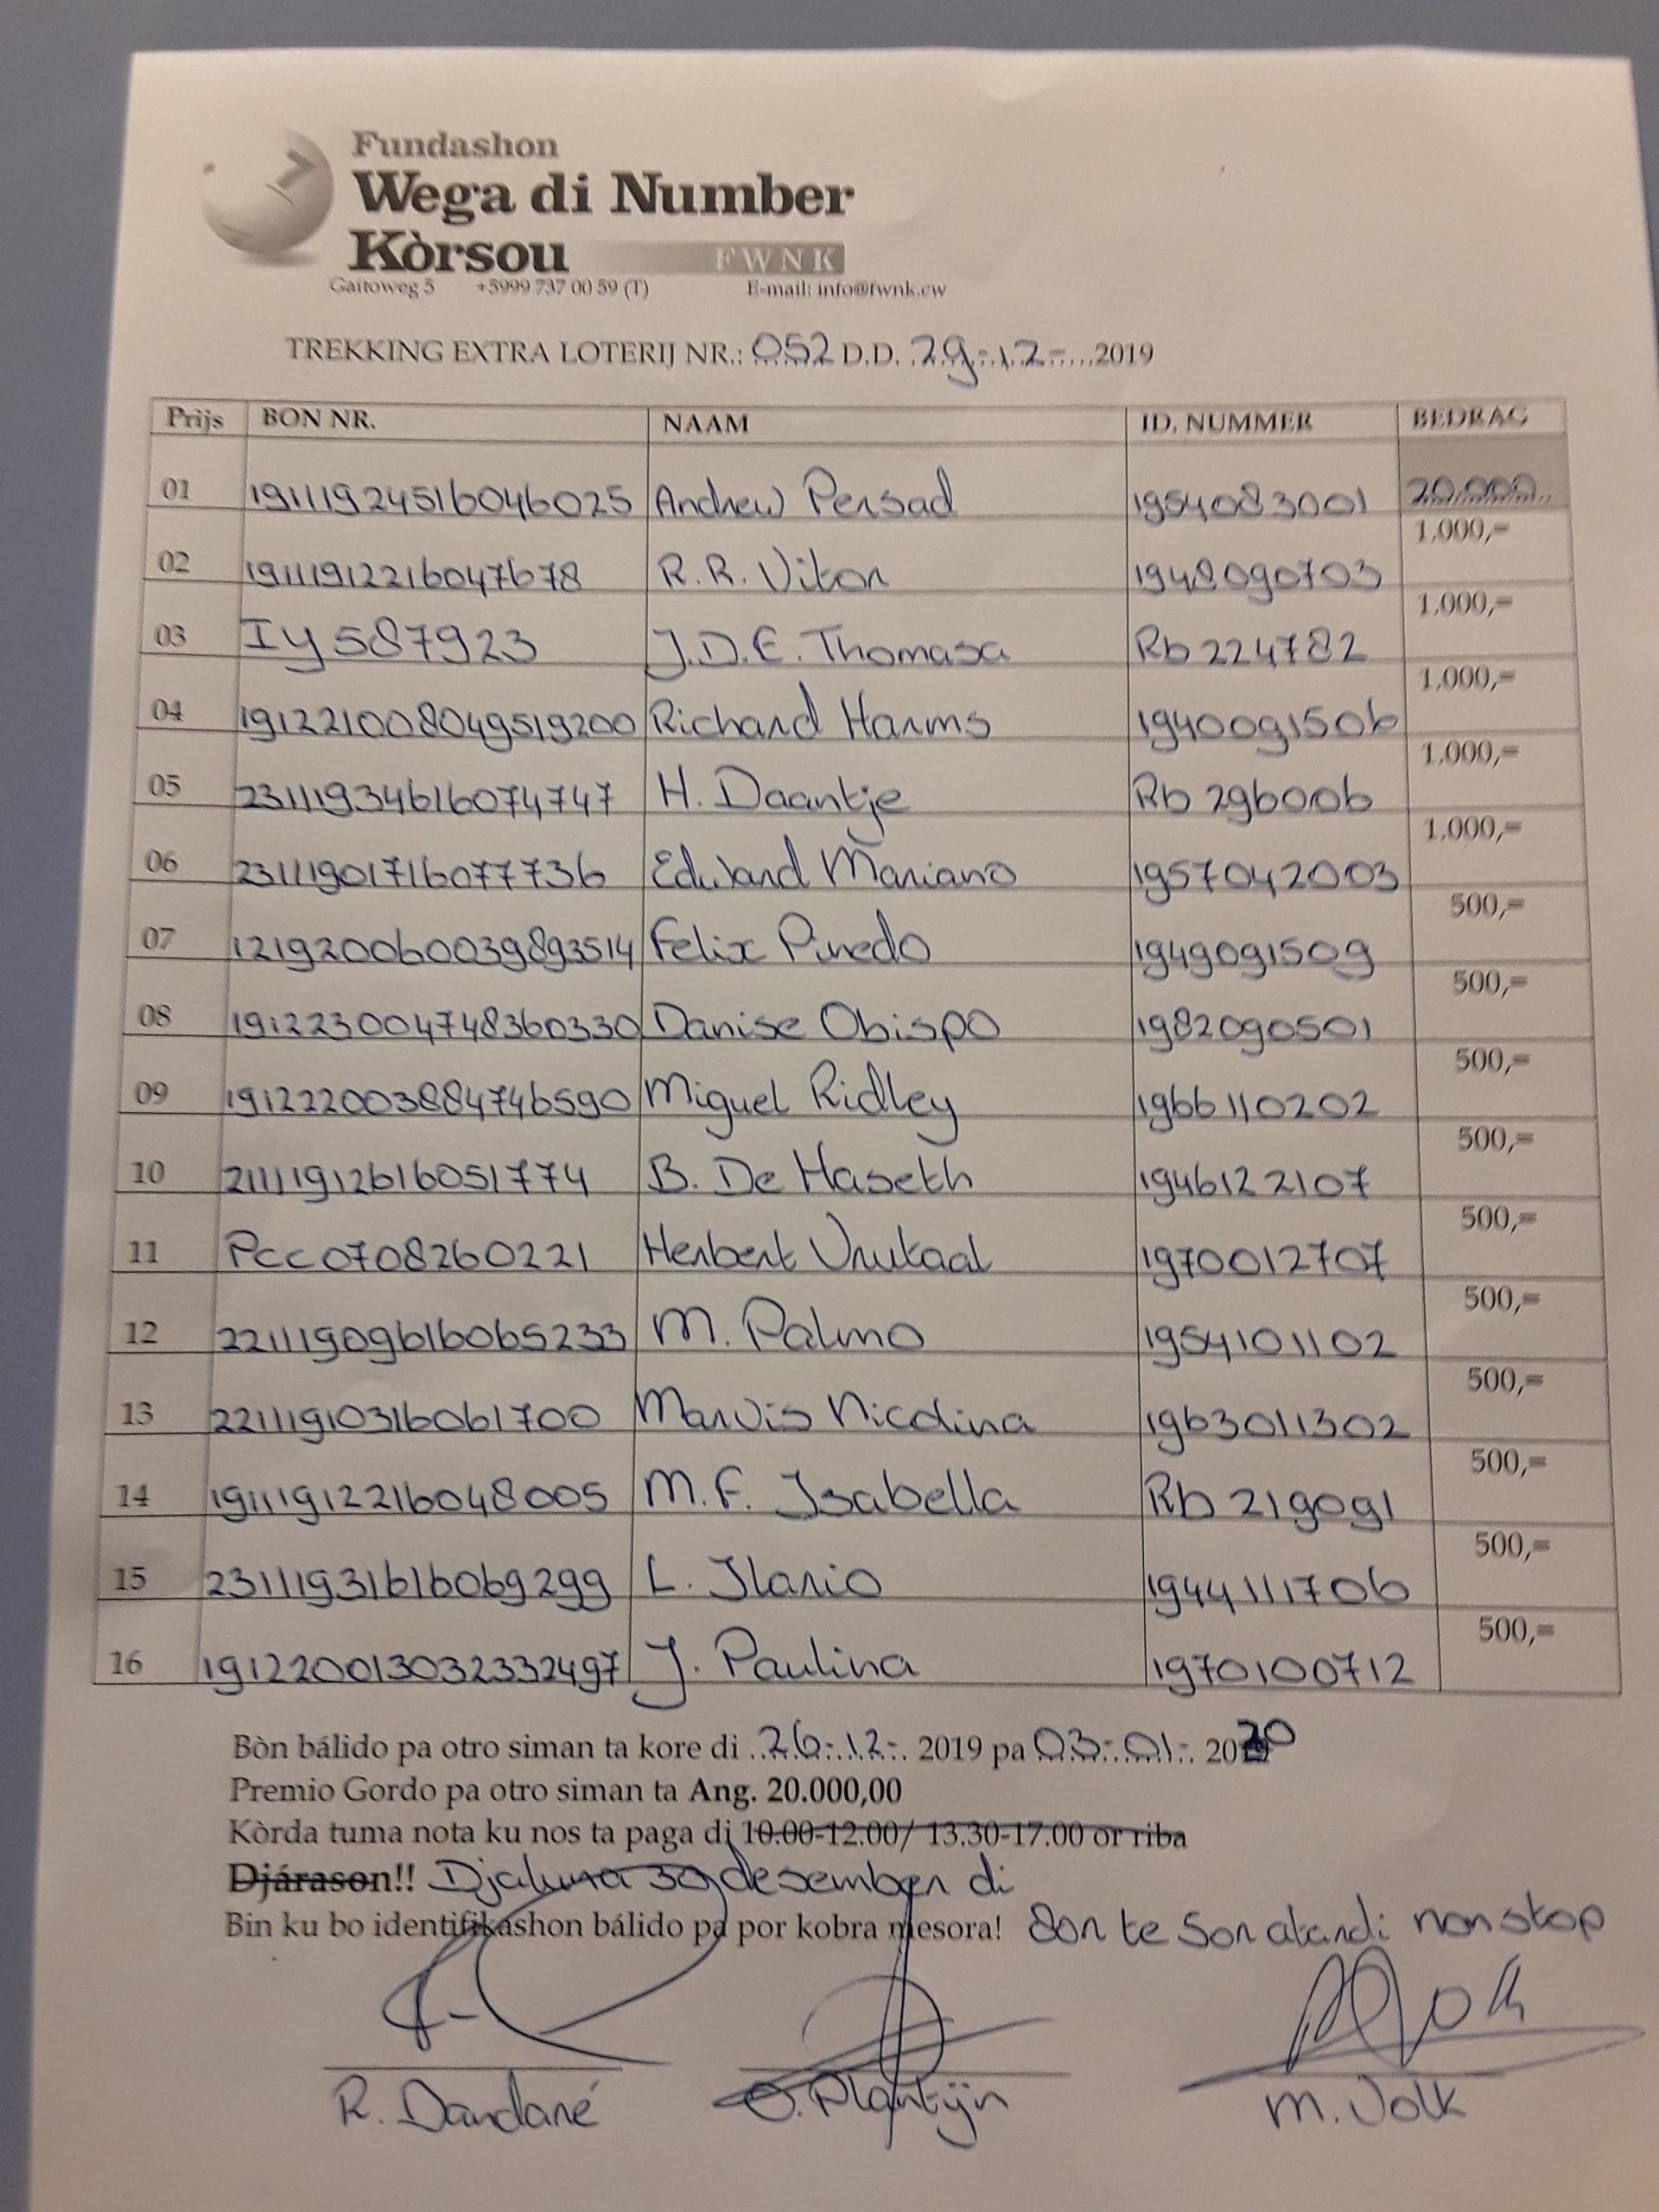 Fundashon
Wega di Number
Kòrsou FWNK
Gaitoweg 5 +5999 737 00 59 (T) E-mail: info@fwnk.cw
TREKKING EXTRA LOTERIJ NR.: 052 D.D. 29-12- 2019
Prijs BON NR. NAAM ID. NUMMER BEDRAG
01 19111924516046025 Andrew Persad 1954083001 20.000
02 19111912216047678 R.R. Vitor 1948090703 1.000,=
03 IY587923 J.D.E. Thomasa Rb 224782 1.000,=
04 191221008049519200 Richard Harms 1940091506 1.000,=
05 23111934616074747 H. Daantje Rb 296006 1.000,=
06 23111901716077736 Edward Mariano 1957042003 1.000,=
07 121920060039893514 Felix Pinedo 1949091509 500,=
08 191223004748360330 Danise Obispo 1982090501 500,=
09 191222003884746590 Miguel Ridley 1966110202 500,=
10 21111912616051774 B. De Haseth 1946122107 500,=
11 PCC0708260221 Herbert Vrutaal 1970012707 500,=
12 22111909616065233 M. Palmo 1954101102 500,=
13 22111910316061700 Marvis Nicolina 1963011302 500,=
14 19111912216048005 M.F. Isabella Rb 219091 500,=
15 23111931616069299 L. Ilario 1944111706 500,=
16 191220013032332497 J. Paulina 1970100712 500,=
Bòn bálido pa otro siman ta kore di 26-12- 2019 pa 03-01- 2020
Premio Gordo pa otro siman ta Ang. 20.000,00
Kòrda tuma nota ku nos ta paga di 10.00-12.00/ 13.30-17.00 or riba
Djárason!! Djaluna 30 desember di
Bin ku bo identifikashon bálido pa por kobra mesora! 8or te 5or atardi nonstop
R. Dandaré O. Plantijn M. Volk